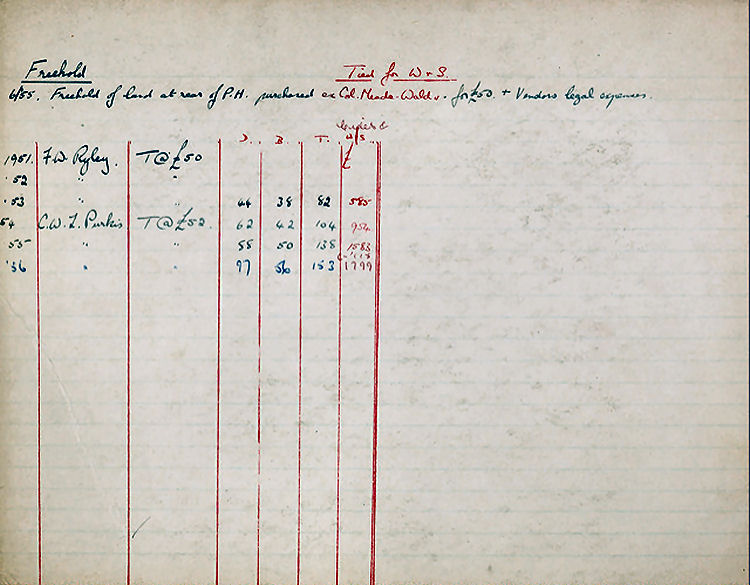 Freehold Tied for W & S.
6/55. Freehold of land at rear of P.H. purchased ex Col. Meade-Waldo. for £50 + Vendors legal expenses.
D. B. T. W/S
£
1951. F.W. Ryley. T@£50
'52 " "
'53 " " 44 38 82 585
54 C.W.L. Purkis T@£52. 62 42 104 954
55 " " 88 50 138 1583
'56 " 97 56 153 1799